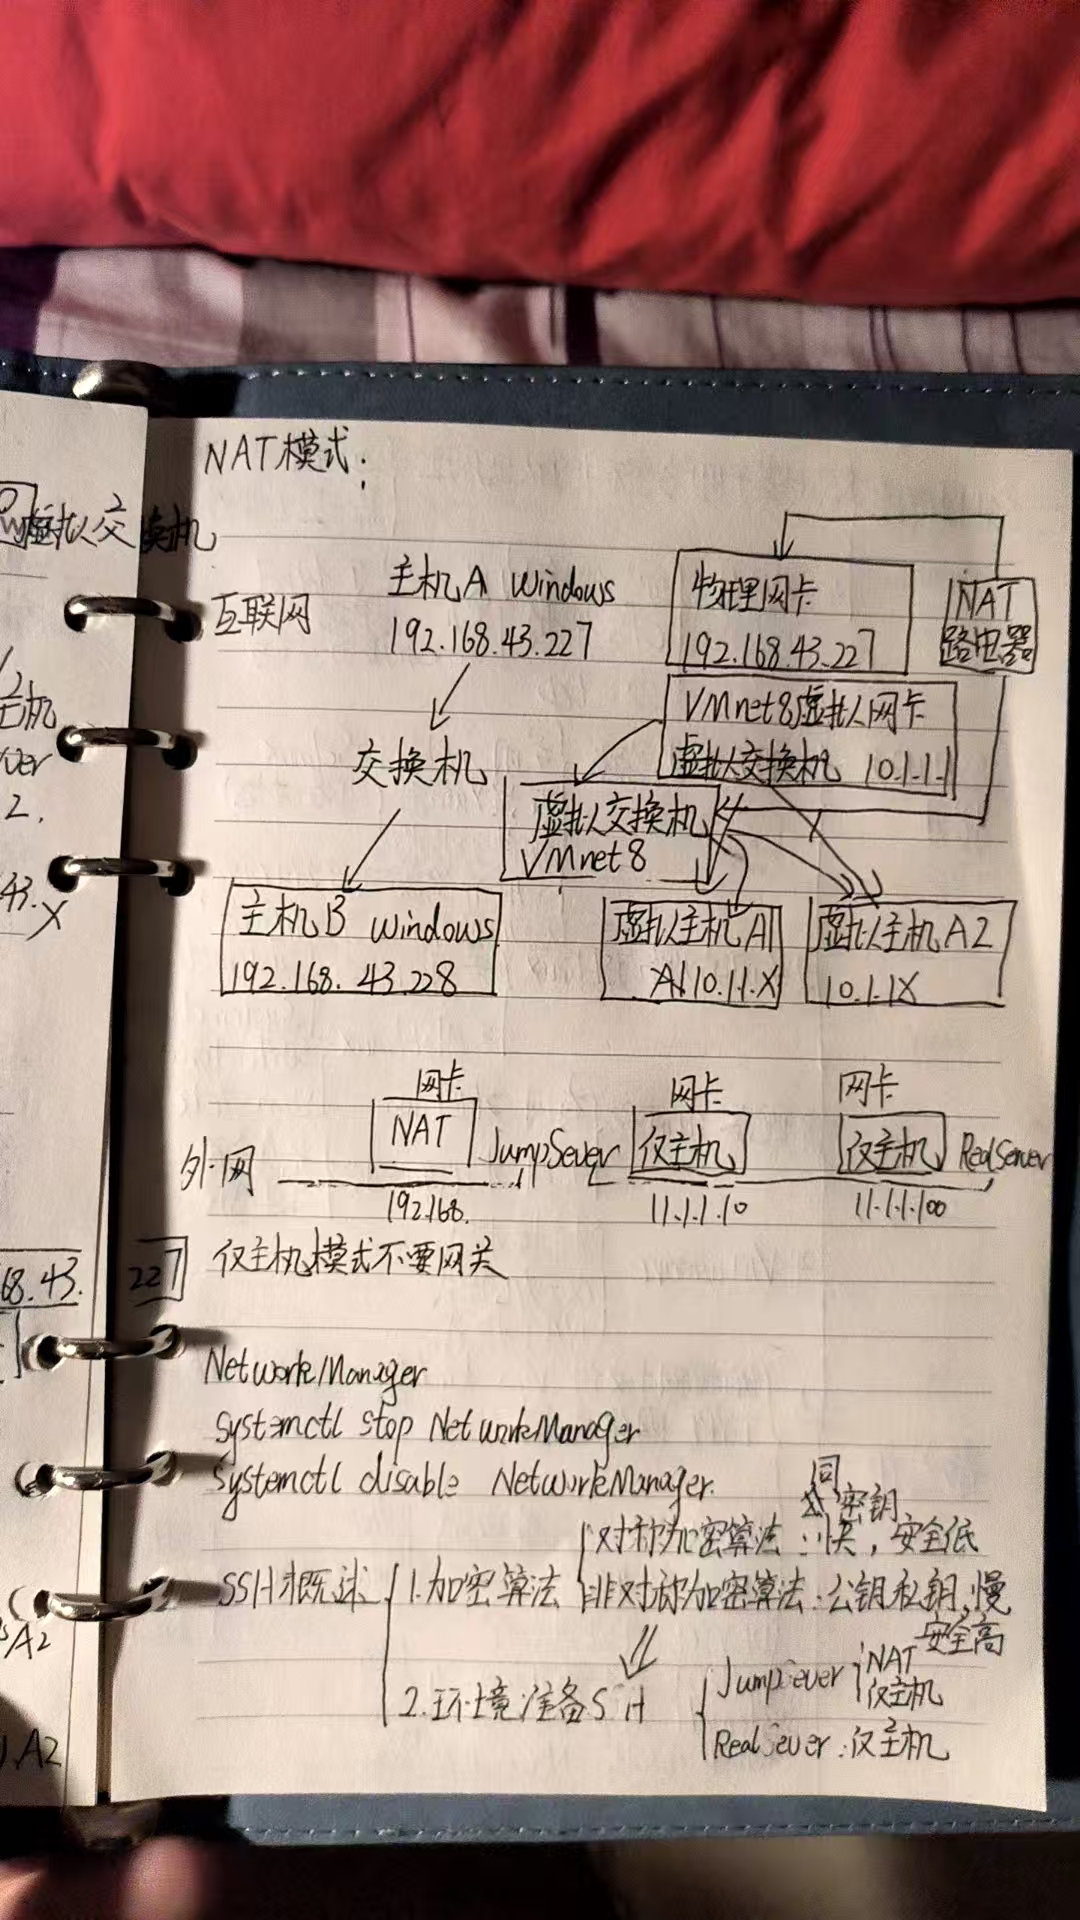 NAT模式:
虚拟交换机
互联网
主机A Windows
192.168.43.227
物理网卡
192.168.43.227
NAT
路由器
VMnet8虚拟网卡
虚拟交换机 10.1.1.1
交换机
虚拟交换机
VMnet8
主机B Windows
192.168.43.228
虚拟主机A1
A1 10.1.1.X
虚拟主机A2
10.1.1X
网卡
网卡
网卡
NAT
JumpSever
仅主机
仅主机
RealServer
外网
192.168.
11.1.1.10
11.1.1.100
仅主机模式不要网关
68.43.
227
NetworkManager
Systemctl stop NetworkManager
Systemctl disable NetworkManager.
同
密钥
对称加密算法:快,安全低
SSH概述
1.加密算法
非对称加密算法:公钥私钥,慢
安全高
2.环境准备SSH
JumpSever
NAT
仅主机
RealSever:仅主机
主机
ver
2.
43.X
A2
.A2